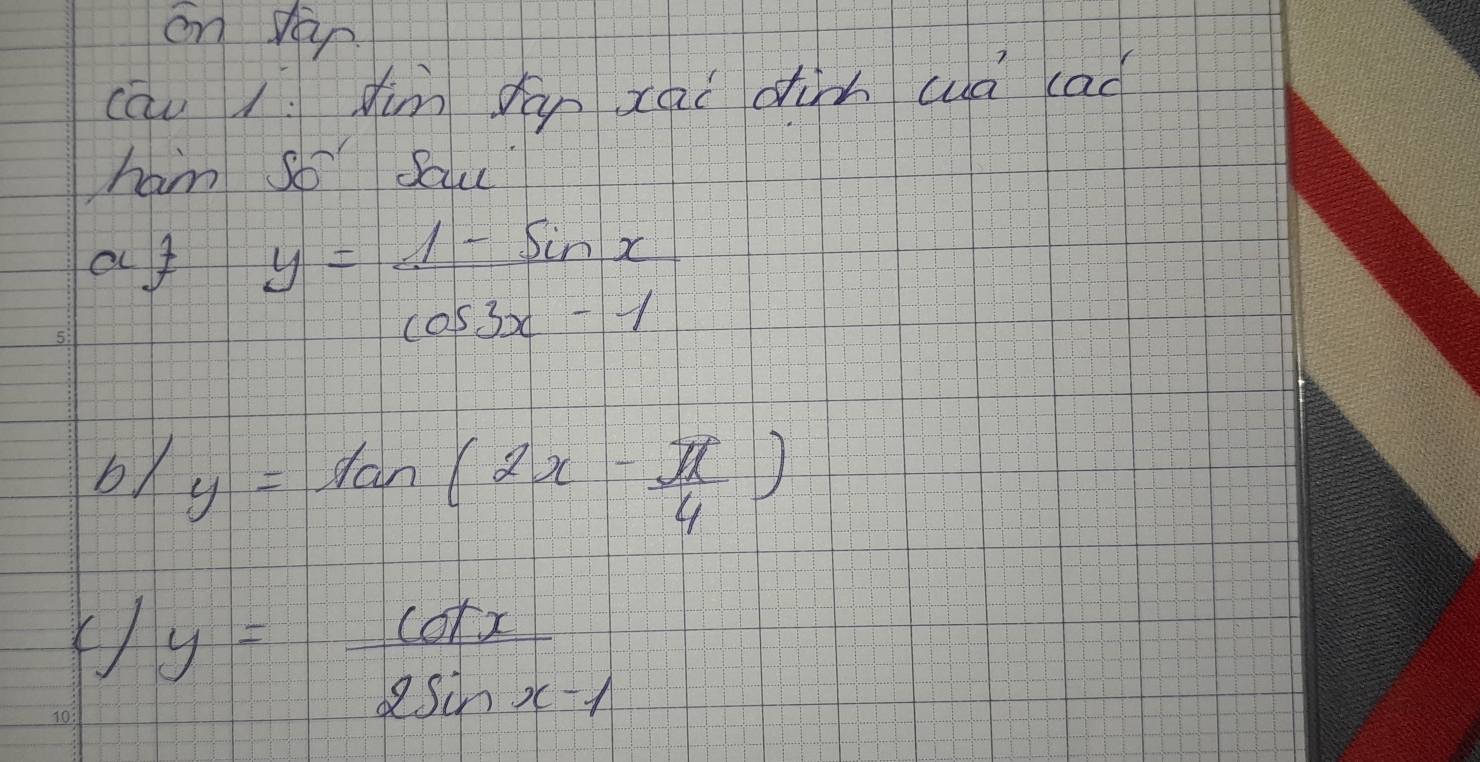 ôn tập
câu 1: tìm tập xác định của các
hàm số sau
a) y = \frac{1 - sin x}{cos3x - 1}
5
b) y = tan(2x - \frac{π}{4})
c) y = \frac{cotx}{2sin x - 1}
10